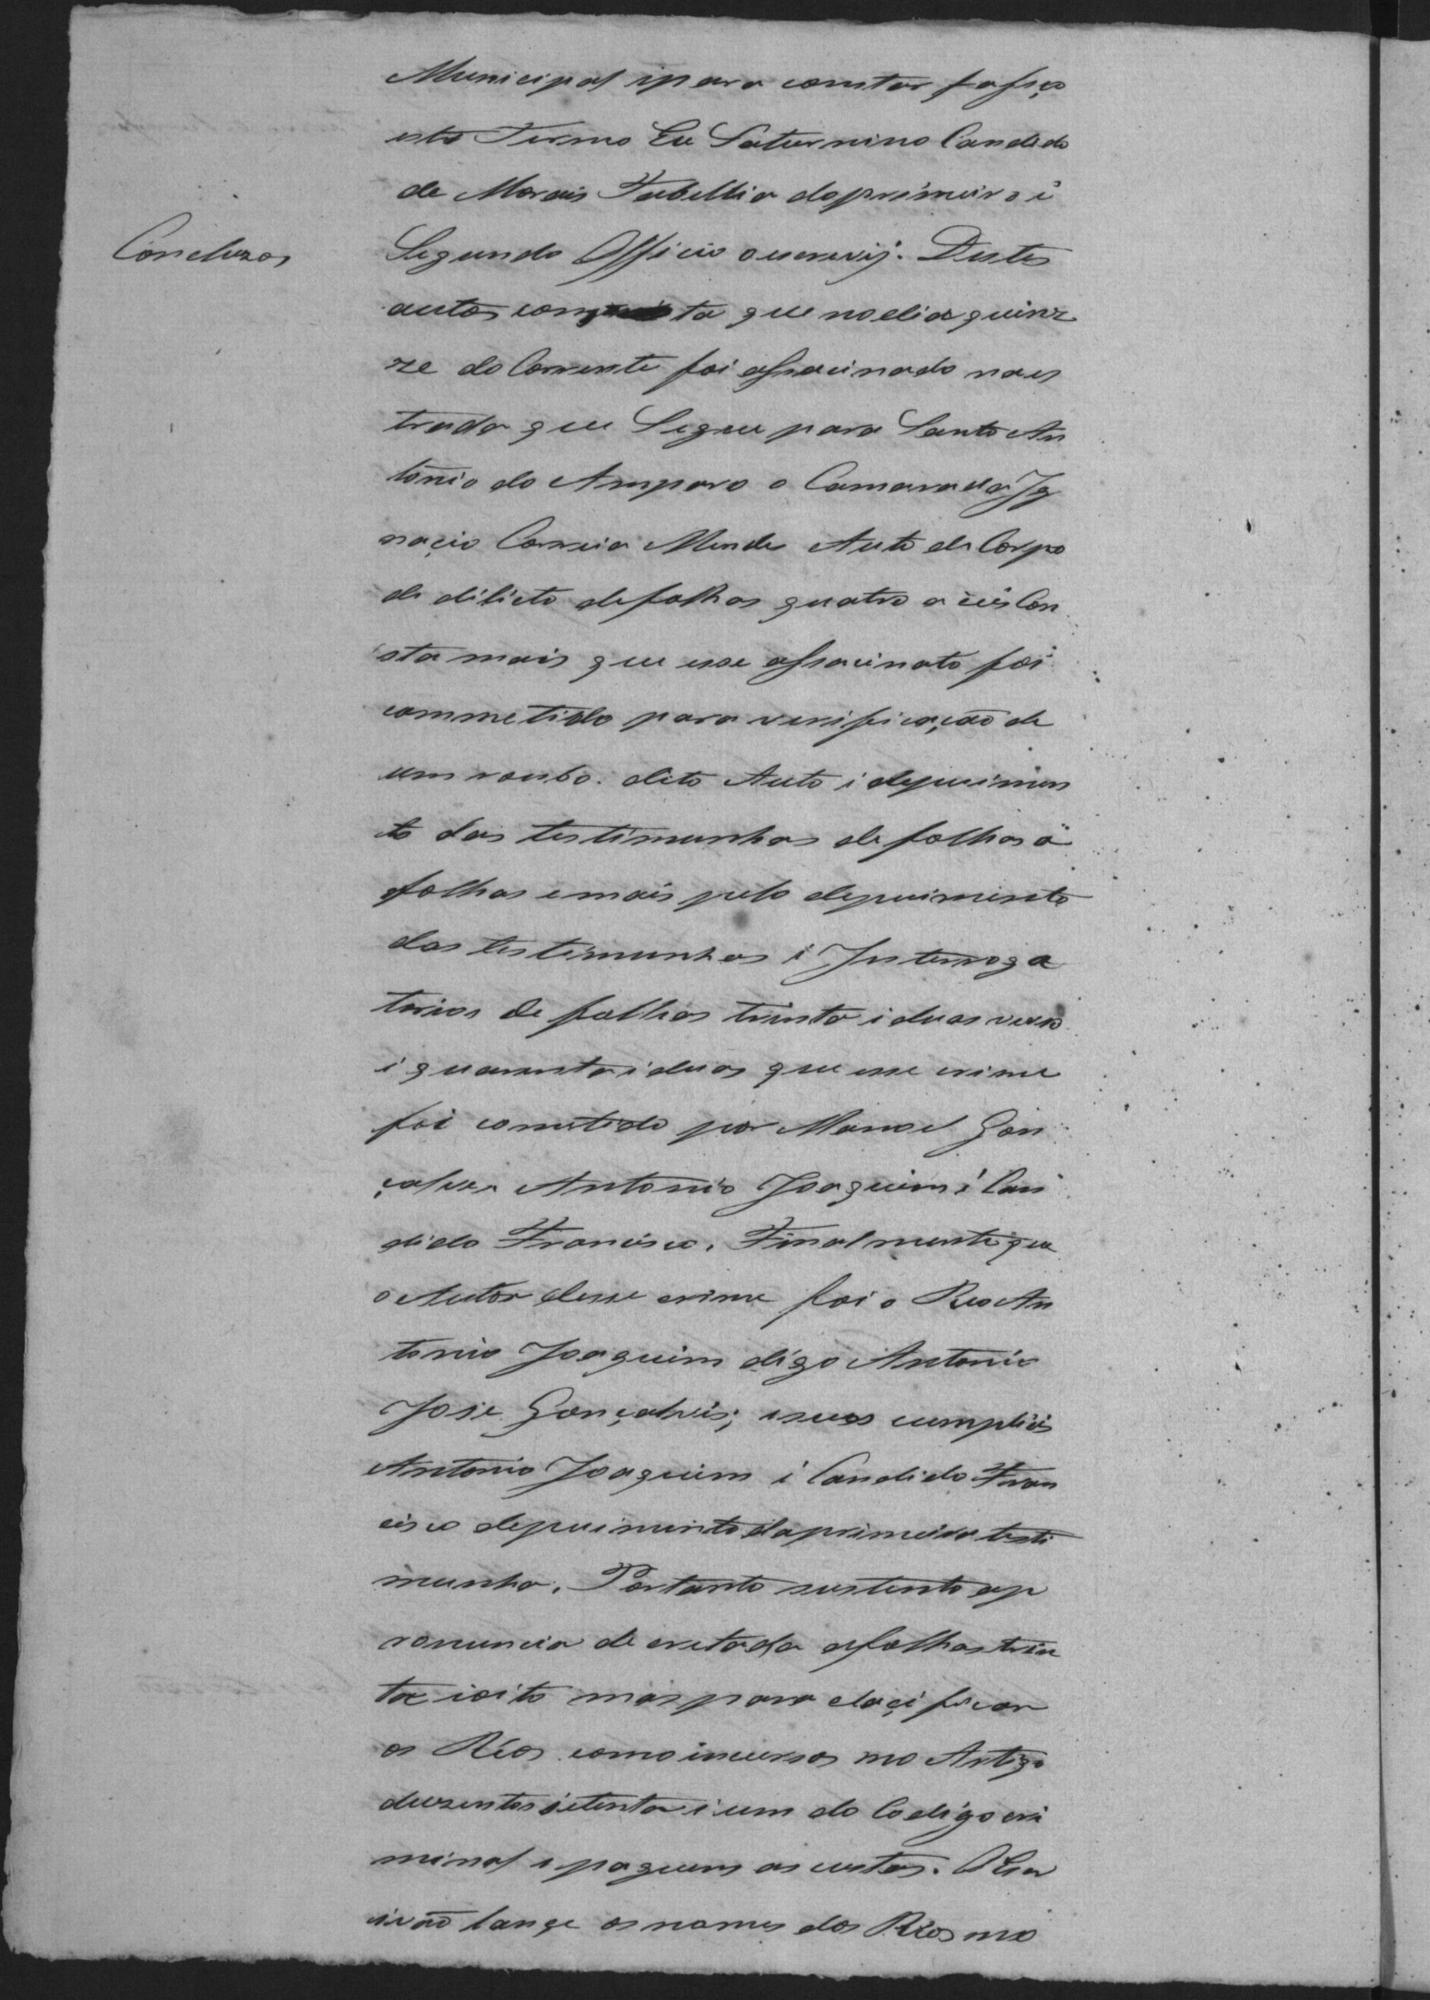 Municipal ipara constar fasso
este Termo Eu Saturnino Candido
de Morais Tabellia doprimeiro i
Concluzos
Segundo Officio o escrevij. Destes
autos consta que nodia quinz
ze do Corrente foi assacinado na es
trada que Segue para Santo An
tonio do Amparo o Camarada Ig
nacio Correia Mendes Auto de Corpo
de dilicto defolhas quatro a seis Con
sta mais que esse assacinato foi
commetido para verificação de
um roubo. dito Auto i depuimen
to das testimunhas de folhas a
folhas emais pelo depuimento
das testimunhas i Interroga
torios de folhas trinta i duas verso
i quarenta i duas que esse crime
foi cometido por Manoel Gon
çalves Antonio Joaquim i Can
dido Francisco. Finalmente que
o Autor desse crime foi o Reo An
tonio Joaquim digo Antonio
Jose Gonçalves; e seus cumplices
Antonio Joaquim i Candido Fran
cisco depuimento daprimeira testi
munha. Portanto sustento ap
ronuncia decretada afolhas trin
ta i oito mas para claçificar
os Réos como incursos no Artigo
duzentos setenta i um do Codigo cri
minal i paguem as custas. O Escr
ivão lançe os nomes dos Réos no